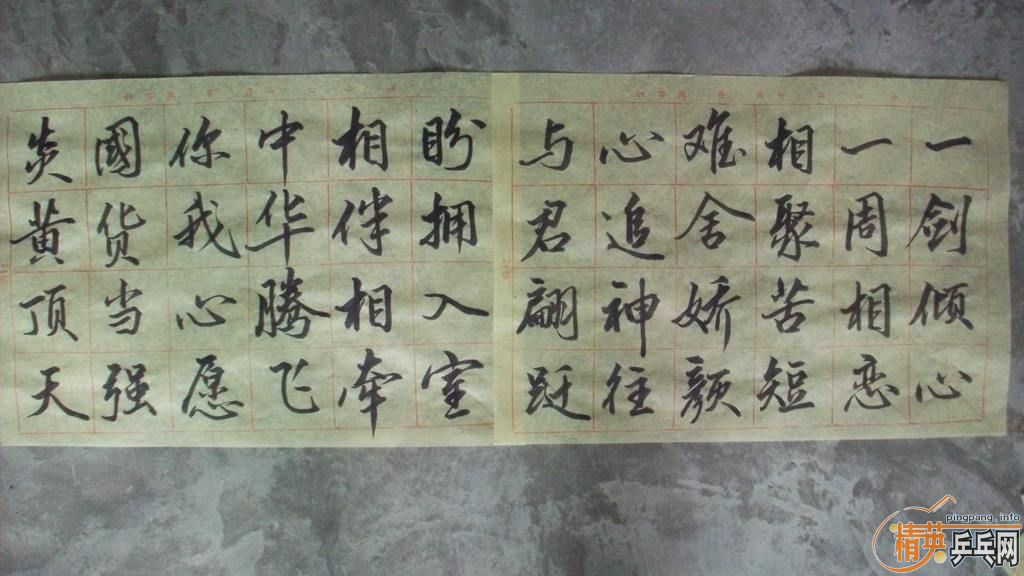 一剑倾心
一周相恋
相聚苦短
难舍娇颜
心追神往
与君翩跹
盼拥入室
相伴相牵
中华腾飞
你我心愿
國货当强
炎黄顶天
pingpang.info
精英乒乓网